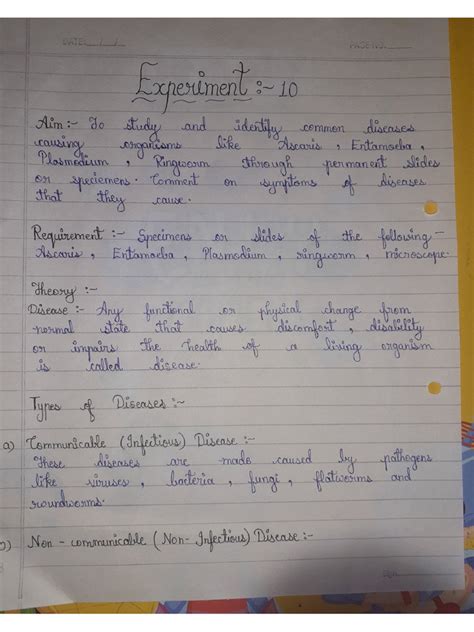 DATE
PAGE NO.
Experiment :- 10
Aim :- To study and identify common diseases
causing organisms like Ascaris, Entamoeba,
Plasmodium, Ringworm through permanent slides
or speciemens. Comment on symptoms of diseases
that they cause.
Requirement :- Specimens or slides of the following -
Ascaris, Entamoeba, Plasmodium, ringworm, microscope.
Theory :-
Disease :- Any functional or physical change from
normal state that causes discomfort, disability
or impairs the health of a living organism
is called disease.
Types of Diseases :-
a) Communicable (Infectious) Disease :-
These diseases are made caused by pathogens
like viruses, bacteria, fungi, flatworms and
roundworms.
Non - communicable (Non- Infectious) Disease :-